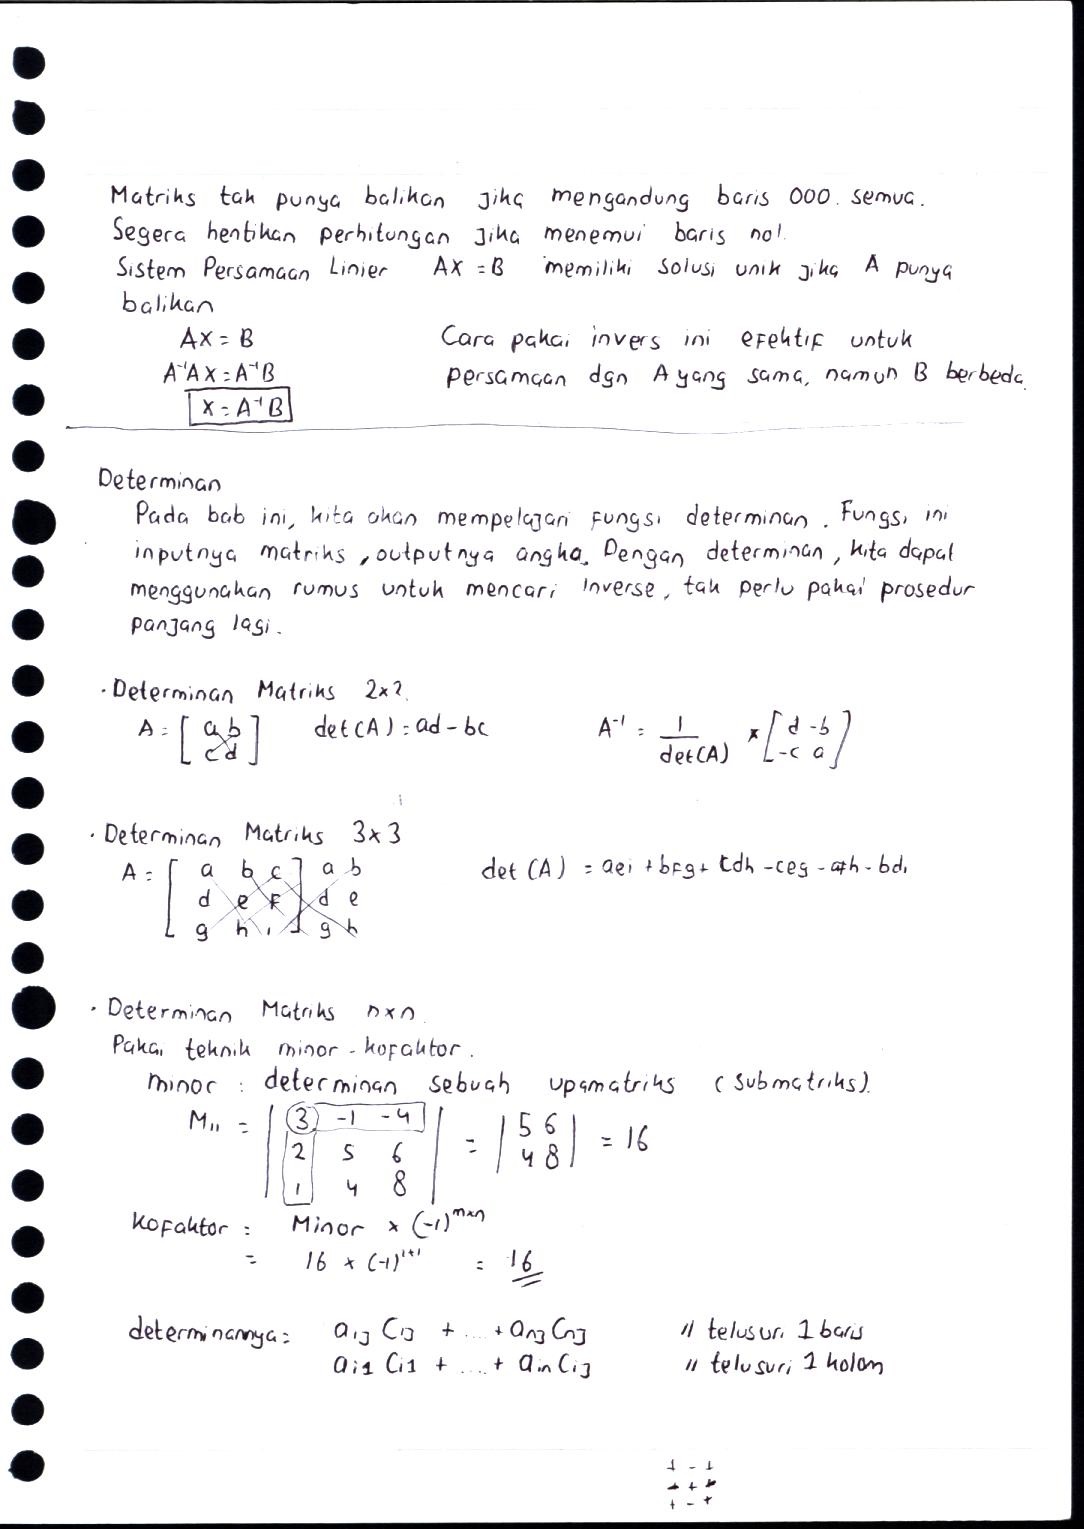 Matriks tak punya balikan jika mengandung baris 000. semua.
Segera hentikan perhitungan jika menemui baris nol.
Sistem Persamaan Linier AX = B memiliki solusi unik jika A punya
balikan
AX = B
A⁻¹AX = A⁻¹B
X = A⁻¹B
Cara pakai invers ini efektif untuk
persamaan dgn A yang sama, namun B berbeda.
Determinan
Pada bab ini, kita akan mempelajari fungsi determinan. Fungsi ini
inputnya matriks, outputnya angka. Dengan determinan, kita dapat
menggunakan rumus untuk mencari inverse, tak perlu pakai prosedur
panjang lagi.
· Determinan Matriks 2×2.
A = [ a b ] det(A) = ad - bc A⁻¹ = 1 × [ d -b ]
c d det(A) -c a
· Determinan Matriks 3×3
A = [ a b c ] a b det (A) = aei + bfg + cdh - ceg - afh - bdi
d e f d e
g h i g h
· Determinan Matriks n×n.
Pakai teknik minor - kofaktor.
minor : determinan sebuah upamatriks (submatriks).
M₁₁ = | 3 -1 -4 | = | 5 6 | = 16
2 5 6 4 8
1 4 8
Kofaktor : Minor × (-1)ᵐˣⁿ
= 16 × (-1)¹⁺¹ = 16
determinannya : aᵢⱼ Cᵢⱼ + .... + aₙⱼ Cₙⱼ // telusuri 1 baris
aᵢ₁ Cᵢ₁ + .... + aᵢₙ Cᵢⱼ // telusuri 1 kolom
+ - +
- + -
+ - +